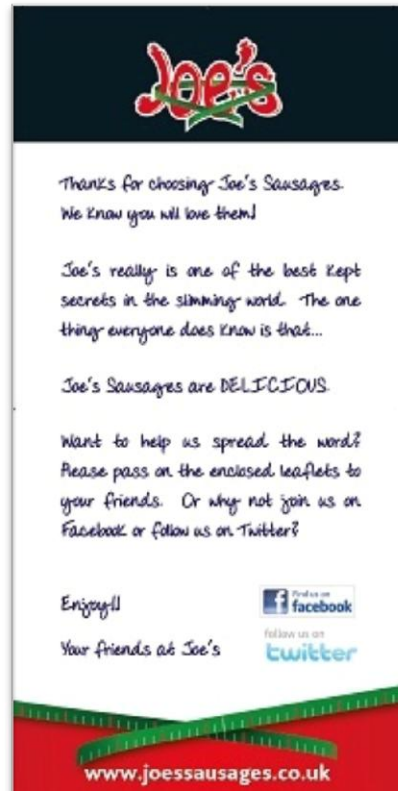 Joe's
Thanks for choosing Joe's Sausages.
We know you will love them!
Joe's really is one of the best kept
secrets in the slimming world. The one
thing everyone does know is that...
Joe's Sausages are DELICIOUS.
Want to help us spread the word?
Please pass on the enclosed leaflets to
your friends. Or why not join us on
Facebook or follow us on Twitter?
Enjoy!!
Your friends at Joe's
Find us on
facebook
follow us on
twitter
www.joessausages.co.uk